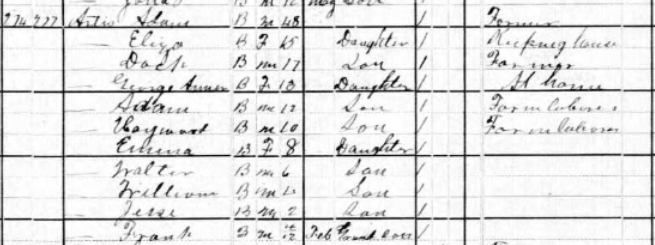 B M
274 277 Artis Adam B M 48 Farmer
— Eliza B F 15 Daughter / Keeping house
— Dock B M 17 Son / Farmer
— George Anner B F 13 Daughter / At home
— Adam B M 12 Son / Farm laborer
— Haywood B M 10 Son / Farm laborer
— Emma B F 8 Daughter /
— Walter B M 6 Son /
— William B M 4 Son /
— Jesse B M 2 Son /
— Frank B M Feb /